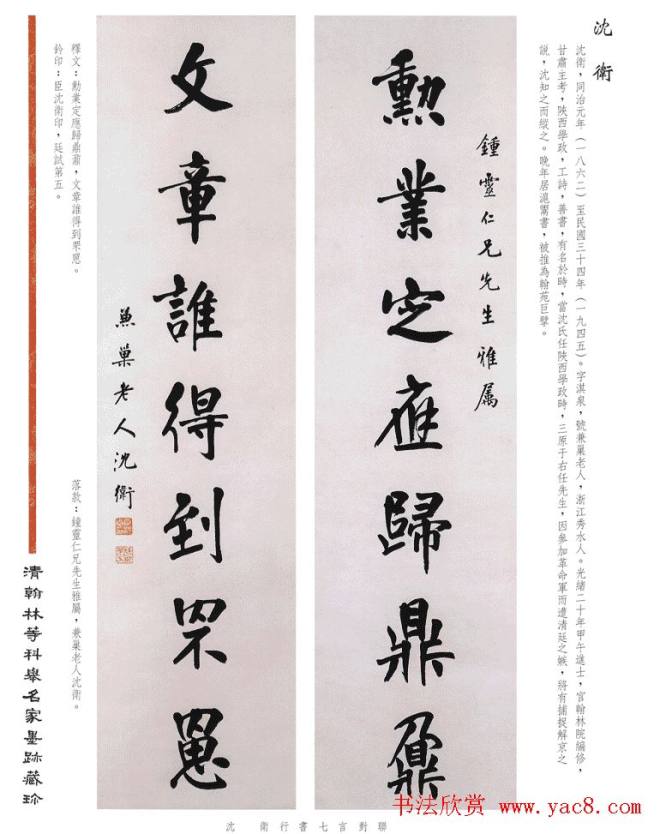 沈衛
沈衛，同治元年（一八六二）至民國三十四年（一九四五）。字淇泉，號兼巢老人，浙江秀水人。光緒二十年甲午進士，官翰林院編修，
甘肅主考，陝西學政，工詩，善書，有名於時，當沈氏任陝西學政時，三原于右任先生，因參加革命軍而遭清廷之嫉，將有捕捉解京之
說，沈知之而縱之。晚年居滬鬻書，被推為翰苑巨擘。
鍾靈仁兄先生雅屬
勳業定應歸鼎鼐
文章誰得到罘罳
兼巢老人沈衛
釋文：勳業定應歸鼎鼐，文章誰得到罘罳。
落款：鍾靈仁兄先生雅屬，兼巢老人沈衛。
鈐印：臣沈衛印，廷試第五。
清翰林等科舉名家墨跡藏珍
沈衛行書七言對聯
书法欣赏 www.yac8.com